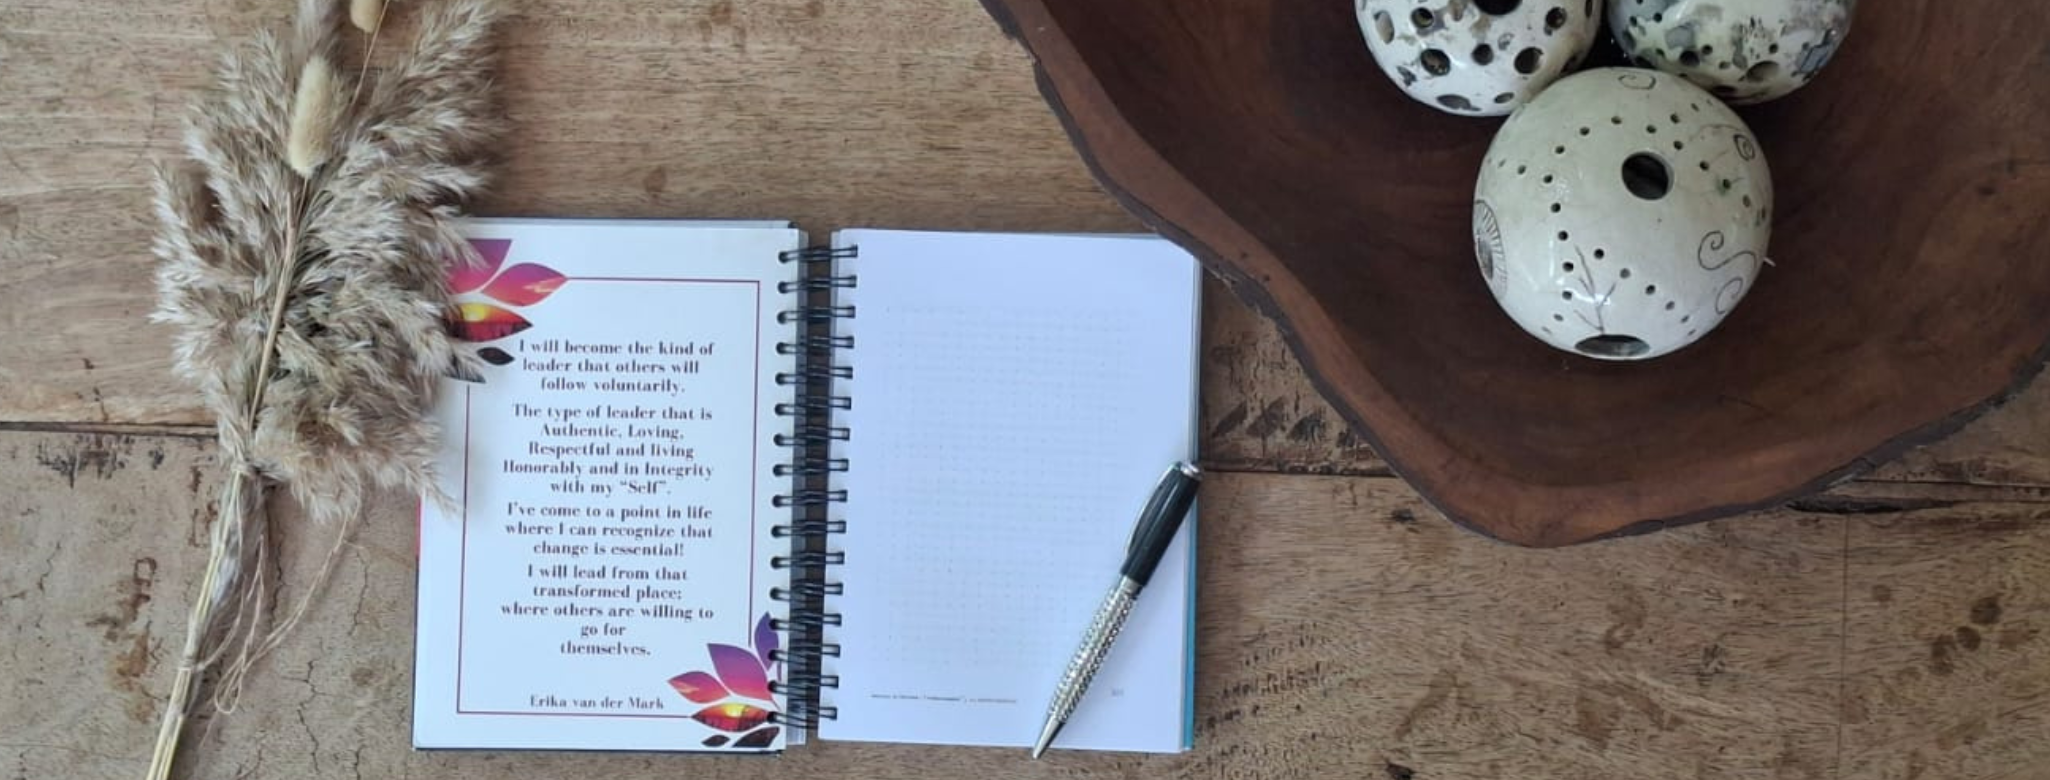 I will become the kind of
leader that others will
follow voluntarily.
The type of leader that is
Authentic, Loving,
Respectful and living
Honorably and in Integrity
with my “Self”.
I've come to a point in life
where I can recognize that
change is essential!
I will lead from that
transformed place;
where others are willing to
go for
themselves.
Erika van der Mark